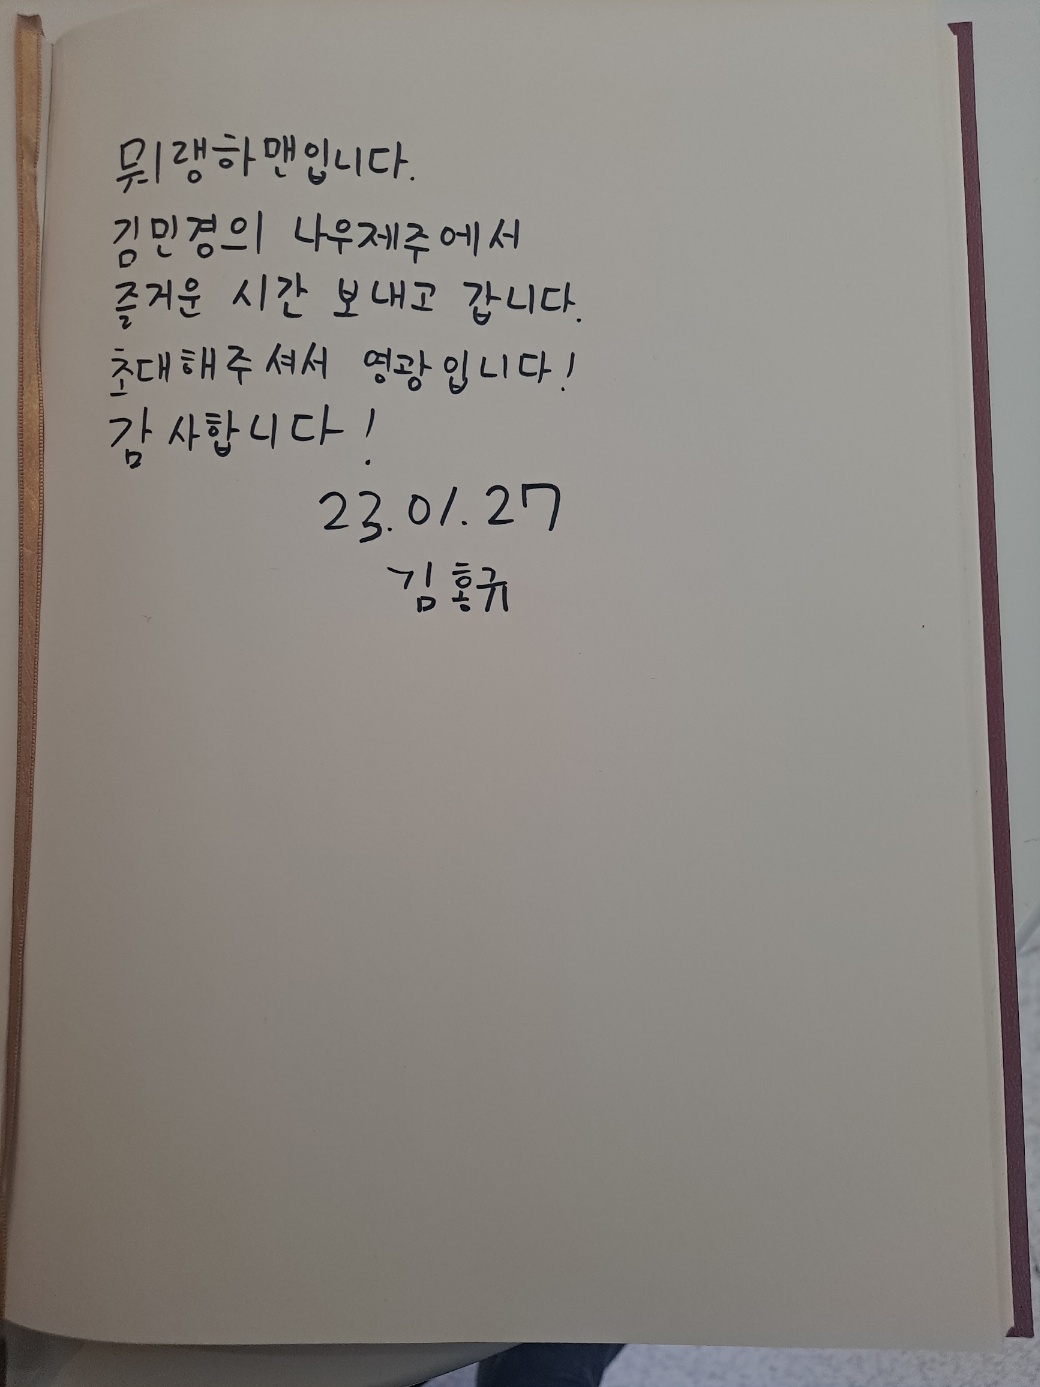 뮈랭하맨입니다.
김민경의 나우제주에서
즐거운 시간 보내고 갑니다.
초대해주셔서 영광입니다!
감사합니다!
23.01.27
김홍귀